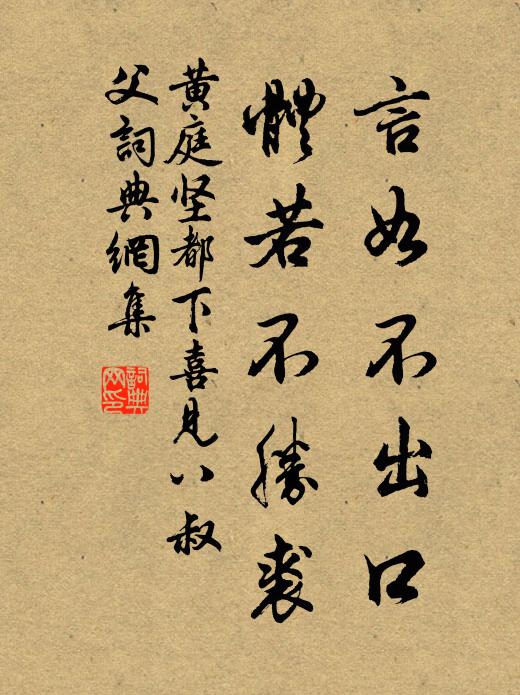 言如不出口
體若不勝裘
黄庭坚都下喜見八叔
父詞典網集
詞典
网印